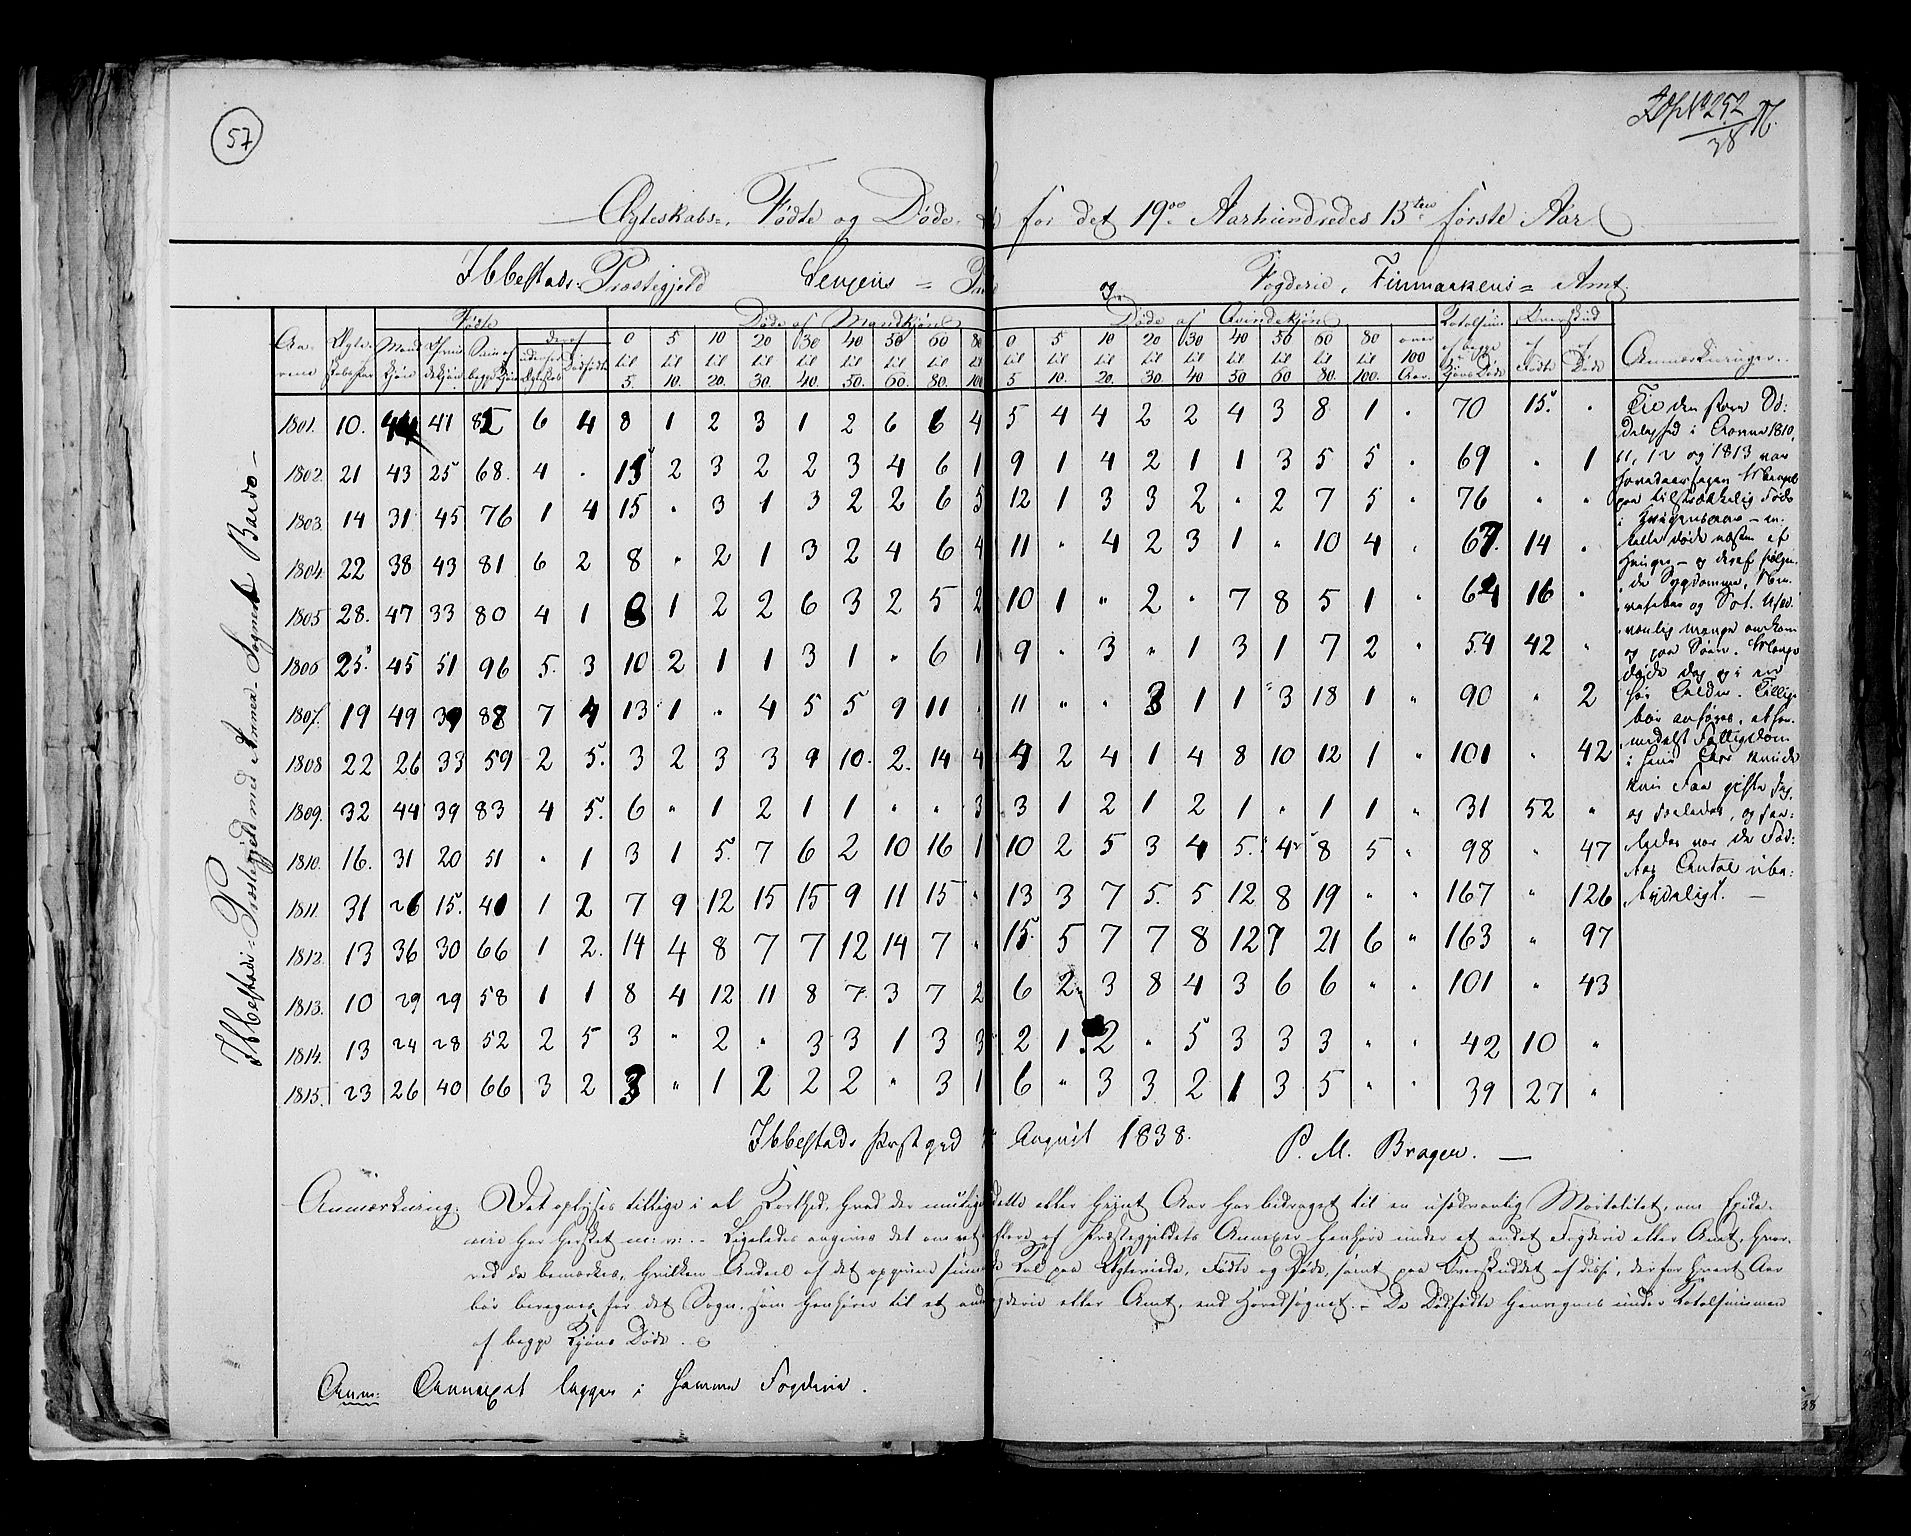 57
252
38
Ægteskabs-, Fødte og Døde- for det 19de Aarhundredes 15ten første Aar
Ibbestads- Præstegjeld Senjens = og Fogderie, Finmarkens = Amt.
Aarene Ægteskaber Fødte Døde af Mandkjøn Døde af Qvindekjøn Totalsum af begge Kjøns Døde Overskud Anmærkninger
Mandkjøn Qvindekjøn Sum af begge Kjøn deraf udenfor Ægteskab Dødfødte 0 til 5. 5 til 10. 10 til 20. 20 til 30. 30 til 40. 40 til 50. 50 til 60. 60 til 80. 80 til 100 0 til 5 5 til 10. 10 til 20. 20 til 30. 30 til 40 40 til 50 50 til 60 60 til 80. 80 til 100. over 100 Aar. af Fødte af Døde
Ibbestads- Præstegjeld med Annex-Sognet Bardo -
1801. 10. 44 41 85 6 4 8 1 2 3 1 2 6 6 4 5 4 4 2 2 4 3 8 1 " 70 15. "
1802. 21 43 25 68. 4 . 15 2 3 2 2 3 4 6 1 9 1 4 2 1 1 3 5 5 " 69 " 1
1803. 14 31 45 76 1 4 15 " 3 1 3 2 2 6 5 12 1 3 3 2 " 2 7 5 " 76 " "
1804. 22 38 43 81 6 2 8 " 2 1 3 2 4 6 4 11 " 4 2 3 1 " 10 4 " 67. 14 "
1805 28. 47 33 80 4 1 8 1 2 2 6 3 2 5 2 10 1 " 2 " 7 8 5 1 " 64 16 "
1806 25. 45 51 96 5. 3 10 2 1 1 3 1 " 6 1 9 " 3 " 1 3 1 7 2 " 54 42 "
1807. 19 49 39 88 7 4 13 1 " 4 5 5 9 11 . 11 " " 3 1 1 3 18 1 " 90 " 2
1808 22 26 33 59 2 5. 3 2 3 3 9 10. 2. 14 4 4 2 4 1 4 8 10 12 1 " 101 " 42
1809. 32 44 39 83 4 5. 6 " 1 2 1 1 " " 3 3 1 2 1 2 1 " 1 1 " 31 52 "
1810. 16. 31 20 51 " 1 3 1 5. 7 6 2 10 16 1 10 2 5 3 4 5. 4 8 5 " 98 " 47
1811. 31 26 15. 40 1 2 7 9 12 15 15 9 11 15 " 13 3 7 5. 5 12 8 19 " " 167 " 126
1812. 13 36 30 66 1 2. 14 4 8 7 7 12 14 7 " 15 5 7 7 8 12 7 21 6 " 163 " 97
1813. 10 29 29 58 1 1 8 4 12 11 8 7 3 7 2 6 2 3 8 4 3 6 6 " " 101 " 43
1814. 13 24 28 52 2 5 3 " 2 " 3 3 1 3 3 2 1 2 " 5 3 3 3 " " 42 10 "
1815. 23 26 40 66 3 2 3 " 1 2 2 2 " 3 1 6 " 3 3 2 1 3 5 " " 39 27 "
Til den store Dødelighed i Aarene 1810,
11, 12 og 1813 var
Hovedaarsagen Mangel
paa tilstrækkelig Føde
i Krigensaar -
døde næsten af
Hunger - og deraf følgende
Sygdomme,
og Sot.
mange omkom
og paa Søen. Mange
døde
Tillige
bør anføres, at formedelst Fattigdom
i hine Aar kunde
kun Faa gifte sig,
og saaledes var de Fødtes Antal ubetydeligt. -
Ibbestads Præstegjeld August 1838. P. M. Bragen. -
Anmærkning. Det oplyses tillige i al Korthed, hvad der muligens dette eller hiint Aar har bidraget til en usædvanlig Mortalitet, om Epidemie
har hersket m: v: - Ligeledes angives det om et eller flere af Præstegjeldets Annexer henhøre under et andet Fogderie eller Amt, hvorved
da bemærkes, hvilken Andeel af det opgivne Tal paa Ægteviede, Fødte og Døde, samt paa Overskuddet af disse, der for hvert Aar
bør beregnes for det Sogn, som henhører til et andet Fogderie eller Amt, end Hovedsognet. - De Dødfødte henregnes under Totalsummen
af begge Kjøns Døde.
Anm: Annexet ligger i samme Fogderie.